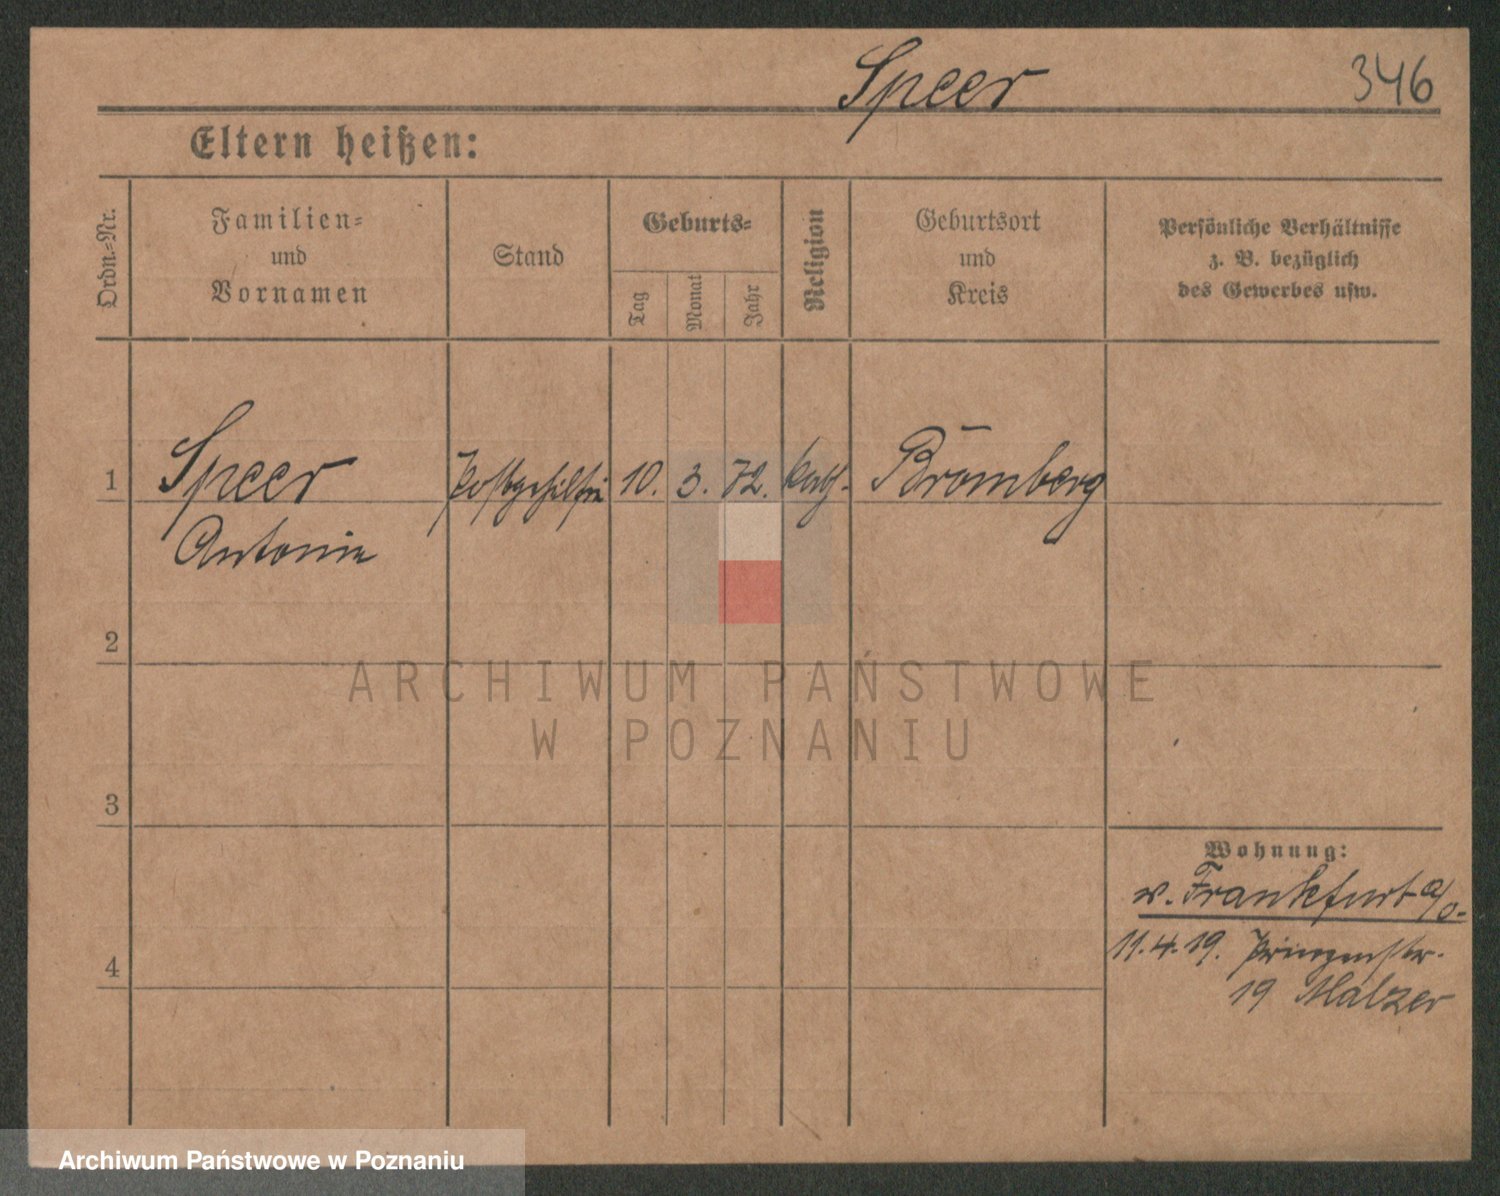 Speer 346
Eltern heißen:
Ordn.=Nr.
Familien=
und
Vornamen
Stand
Geburts=
Tag
Monat
Jahr
Religion
Geburtsort
und
Kreis
Persönliche Verhältnisse
z. B. bezüglich
des Gewerbes usw.
1 Speer Postgehilfin 10. 3. 72. kath. Bromberg
Antonie
2
3
4
Wohnung:
v. Frankfurt a/O.
11.4.19. Prinzenstr.
19 Malzer
ARCHIWUM PAŃSTWOWE
W POZNANIU
Archiwum Państwowe w Poznaniu